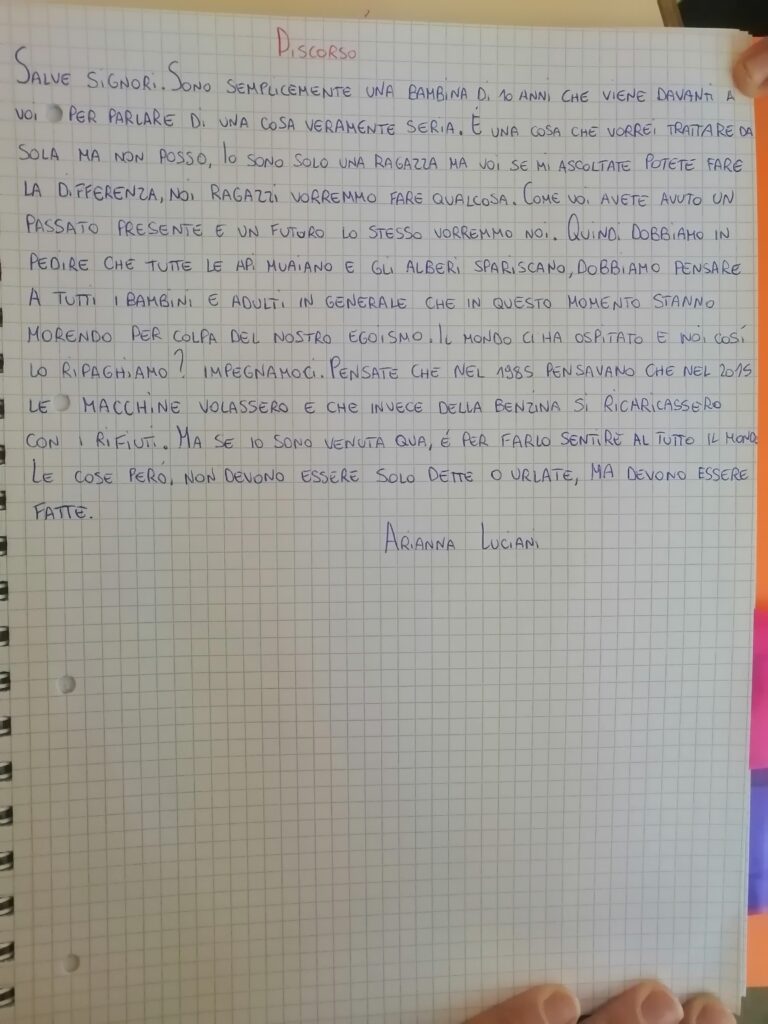 DISCORSO
SALVE SIGNORI. SONO SEMPLICEMENTE UNA BAMBINA DI 10 ANNI CHE VIENE DAVANTI A
VOI PER PARLARE DI UNA COSA VERAMENTE SERIA. É UNA COSA CHE VORREI TRATTARE DA
SOLA MA NON POSSO, IO SONO SOLO UNA RAGAZZA MA VOI SE MI ASCOLTATE POTETE FARE
LA DIFFERENZA, NOI RAGAZZI VORREMMO FARE QUALCOSA. COME VOI AVETE AVUTO UN
PASSATO PRESENTE E UN FUTURO LO STESSO VORREMMO NOI. QUINDI DOBBIAMO IN
PEDIRE CHE TUTTE LE API MUAIANO E GLI ALBERI SPARISCANO, DOBBIAMO PENSARE
A TUTTI I BAMBINI E ADULTI IN GENERALE CHE IN QUESTO MOMENTO STANNO
MORENDO PER COLPA DEL NOSTRO EGOISMO. IL MONDO CI HA OSPITATO E NOI COSÍ
LO RIPAGHIAMO? IMPEGNAMOCI. PENSATE CHE NEL 1985 PENSAVANO CHE NEL 2015
LE MACCHINE VOLASSERO E CHE INVECE DELLA BENZINA SI RICARICASSERO
CON I RIFIUTI. MA SE IO SONO VENUTA QUA, É PER FARLO SENTIRE AL TUTTO IL MONDO.
LE COSE PERÓ, NON DEVONO ESSERE SOLO DETTE O URLATE, MA DEVONO ESSERE
FATTE.
ARIANNA LUCIANI